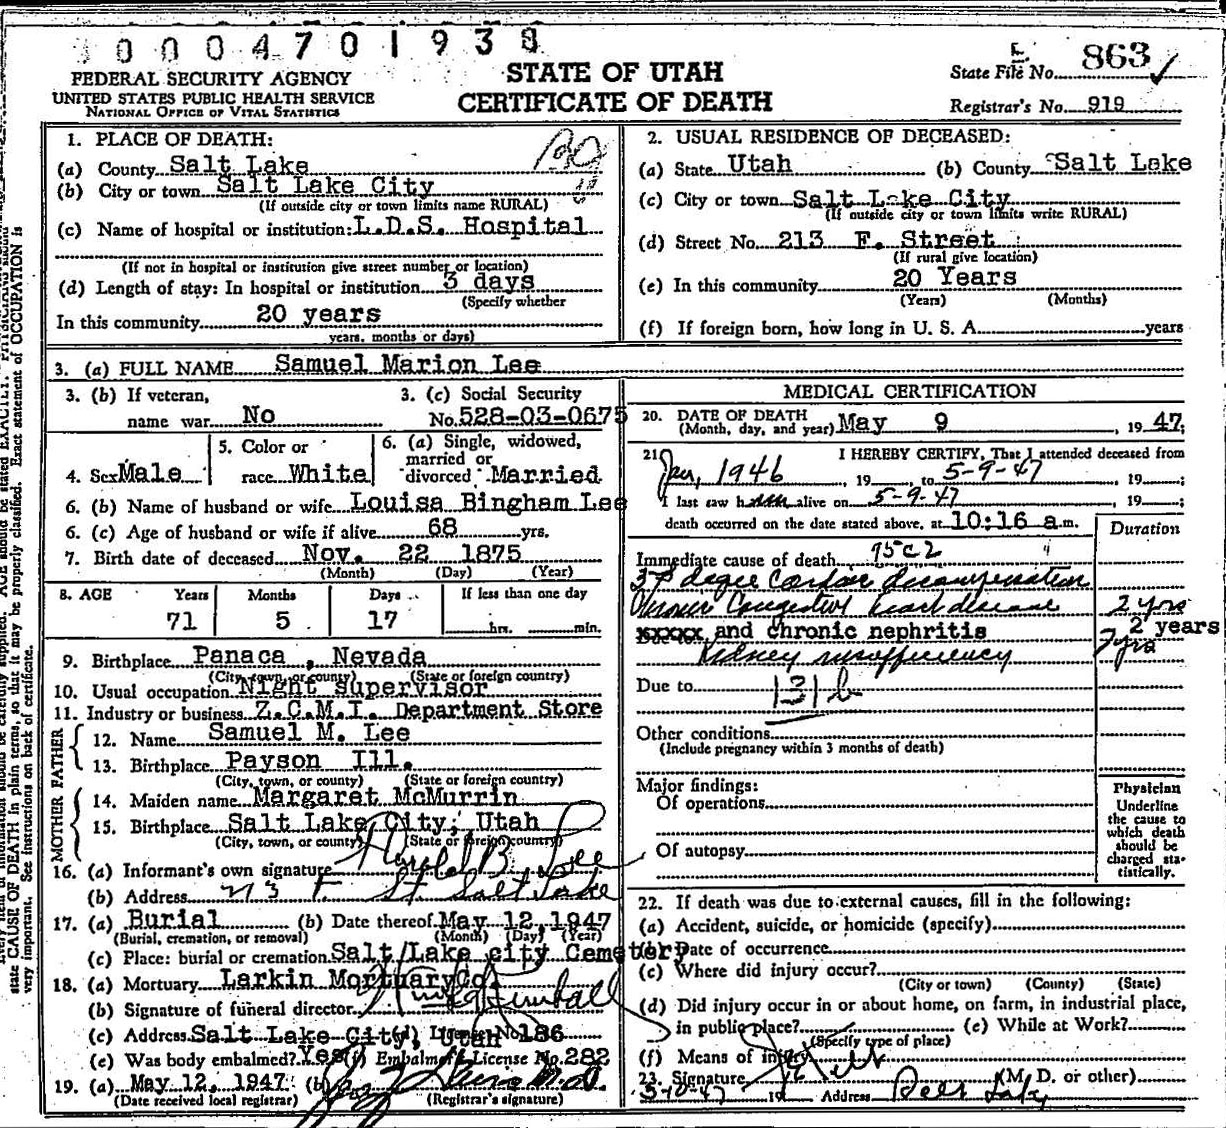 0 0 0 4 7 0 1 9 3 8
FEDERAL SECURITY AGENCY
UNITED STATES PUBLIC HEALTH SERVICE
NATIONAL OFFICE OF VITAL STATISTICS
STATE OF UTAH
CERTIFICATE OF DEATH
State File No. 863
Registrar's No. 919
1. PLACE OF DEATH:
(a) County Salt Lake
(b) City or town Salt Lake City
(If outside city or town limits name RURAL)
(c) Name of hospital or institution: L.D.S. Hospital
(If not in hospital or institution give street number or location)
(d) Length of stay: In hospital or institution 3 days
(Specify whether
In this community 20 years
years, months or days)
2. USUAL RESIDENCE OF DECEASED:
(a) State Utah (b) County Salt Lake
(c) City or town Salt Lake City
(If outside city or town limits write RURAL)
(d) Street No. 213 F. Street
(If rural give location)
(e) In this community 20 Years
(Years) (Months)
(f) If foreign born, how long in U. S. A. years
3. (a) FULL NAME Samuel Marion Lee
3. (b) If veteran,
name war No
3. (c) Social Security
No. 528-03-0675
4. Sex Male
5. Color or
race White
6. (a) Single, widowed,
married or
divorced Married
6. (b) Name of husband or wife Louisa Bingham Lee
6. (c) Age of husband or wife if alive 68 yrs.
7. Birth date of deceased Nov. 22 1875
(Month) (Day) (Year)
8. AGE Years Months Days If less than one day
71 5 17 hrs. min.
9. Birthplace Panaca, Nevada
(City, town, or county) (State or foreign country)
10. Usual occupation Night supervisor
11. Industry or business Z.C.M.I. Department Store
FATHER
12. Name Samuel M. Lee
13. Birthplace Payson Ill.
(City, town, or county) (State or foreign country)
MOTHER
14. Maiden name Margaret McMurrin
15. Birthplace Salt Lake City, Utah
(City, town, or county) (State or foreign country)
16. (a) Informant's own signature Harold B. Lee
(b) Address 213 F. St. Salt Lake
17. (a) Burial (b) Date thereof May 12, 1947
(Burial, cremation, or removal) (Month) (Day) (Year)
(c) Place: burial or cremation Salt Lake city Cemetery
18. (a) Mortuary Larkin Mortuary Co.
(b) Signature of funeral director
(c) Address Salt Lake City, Utah (d) License No. 186
(e) Was body embalmed? Yes (f) Embalmer's License No. 282
19. (a) May 12, 1947 (b)
(Date received local registrar) (Registrar's signature)
MEDICAL CERTIFICATION
20. DATE OF DEATH
(Month, day, and year) May 9, 1947;
21. I HEREBY CERTIFY, That I attended deceased from
Jan, 1946, 19 , to 5-9-47, 19 ;
I last saw him alive on 5-9-47 19 ;
death occurred on the date stated above, at 10:16 a.m.
Duration
Immediate cause of death 95c2
3rd degree Cardiac decompensation
Chronic Congestive heart disease 2 yrs
xxxxx and chronic nephritis 2 years
Kidney insufficiency
Due to 131b
Other conditions
(Include pregnancy within 3 months of death)
Major findings:
Of operations
Of autopsy
Physician
Underline
the cause to
which death
should be
charged sta-
tistically.
22. If death was due to external causes, fill in the following:
(a) Accident, suicide, or homicide (specify)
(b) Date of occurrence
(c) Where did injury occur?
(City or town) (County) (State)
(d) Did injury occur in or about home, on farm, in industrial place,
in public place? (e) While at Work?
(Specify type of place)
(f) Means of injury
23. Signature (M. D. or other)
5-10-47 19 Address
state CAUSE OF DEATH in plain terms, so that it may be properly classified. Exact statement of OCCUPATION is
very important. See instructions on back of certificate.